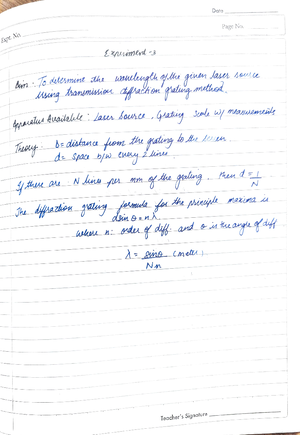 Date
Expt. No.
Page No.
Experiment -3
Aim:- To determine the wavelength of the given laser source
Using transmission diffraction grating method.
Apparatus Available: Laser Source, Grating Scale w/ measurements
Theory:- b= distance from the grating to the screen
d= space b/w every 2 lines
If there are N lines per mm of the grating. Then d = 1/N
The diffraction grating formula for the principle maxima is
dsin θ = nλ
where n: order of diff. and θ is the angle of diff
λ = sinθ/Nn (meter)
Teacher's Signature